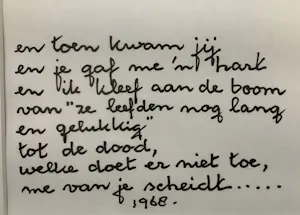 en toen kwam jij
en je gaf me 'n hart
en ik kleef aan de boom
van "ze leefden nog lang
en gelukkig"
tot de dood,
welke doet er niet toe,
me van je scheidt.....
1968.